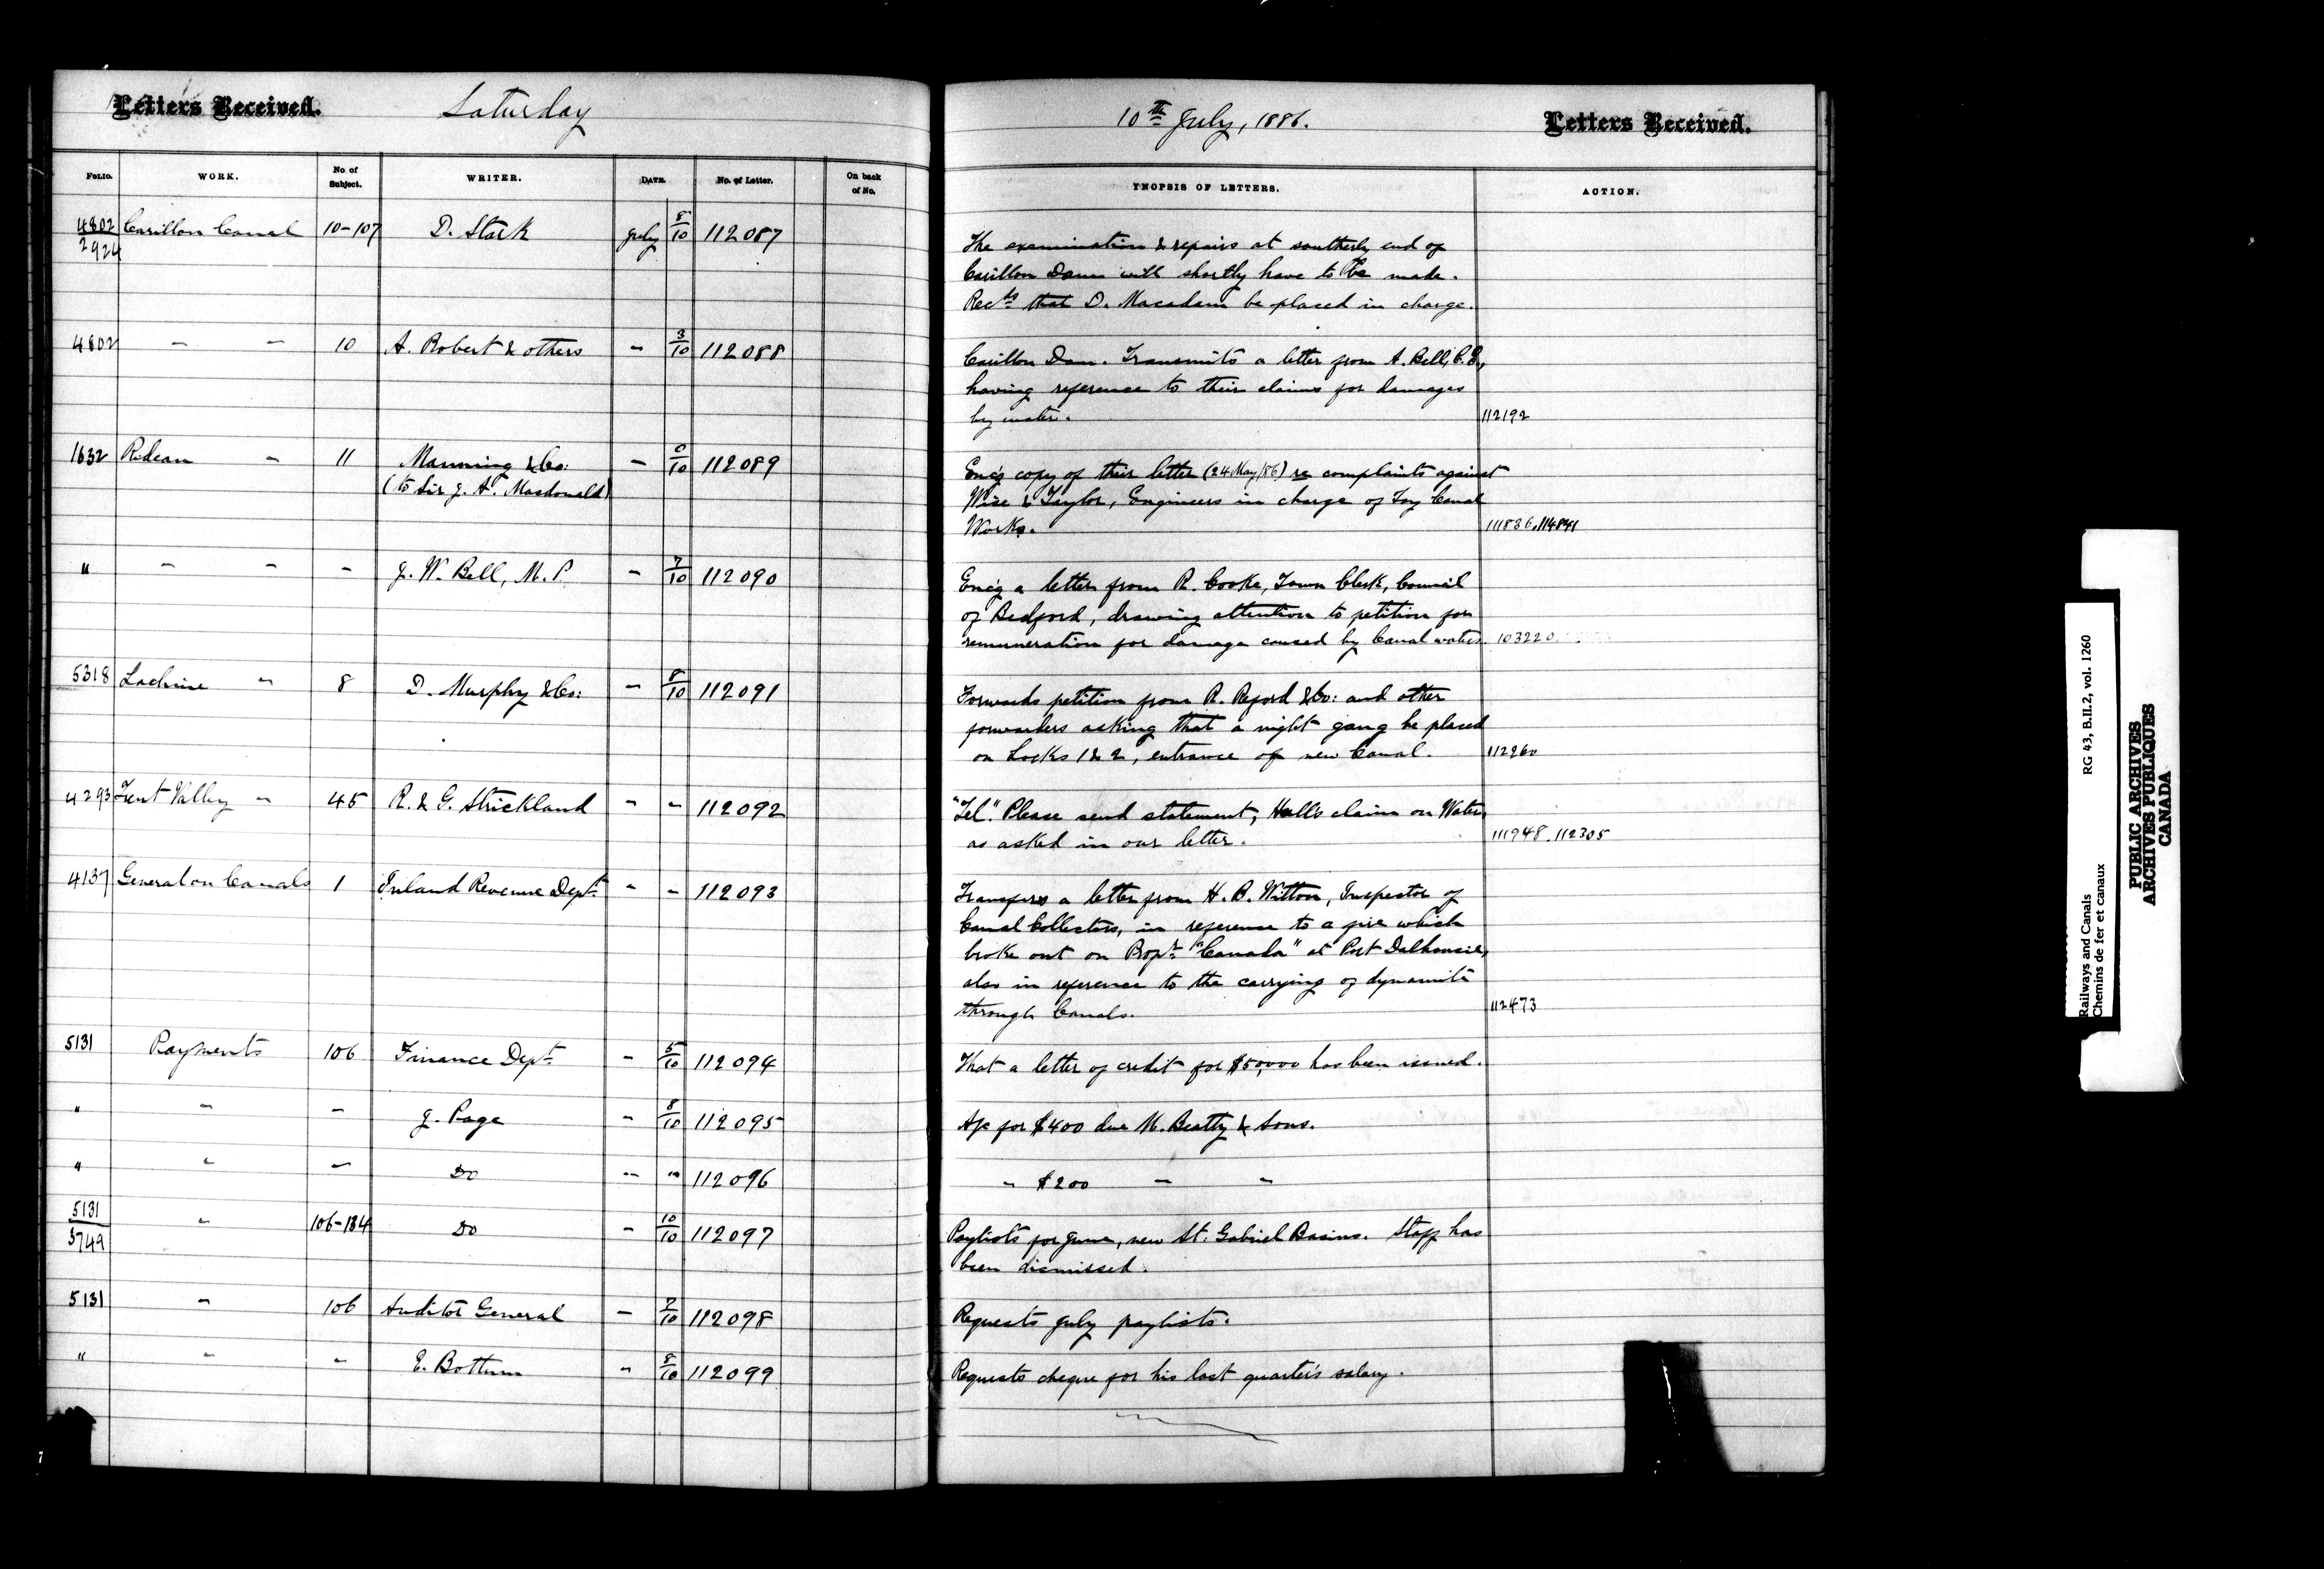 Letters Received. Saturday
10th July, 1886. Letters Received.
FOLIO. WORK. No. of Subject. WRITER. DATE. No. of Letter. On back of No.
YNOPSIS OF LETTERS. ACTION.
4802/2924 Carillon Canal 10-107 D. Stark July 8/10 112087
The examination & repairs at southerly end of
Carillon Dam will shortly have to be made.
Recds that D. Macadam be placed in charge.
4802 " " 10 A. Robert & others " 3/10 112088
Carillon Dam. Transmits a letter from A. Bell, C.E.,
having reference to their claims for damages
by water. 112192
1632 Rideau " 11 Manning & Co: " /10 112089
(to Sir J. A. Macdonald)
Enc'g copy of their letter (24 May/86) re complaints against
Wise & Taylor, Engineers in charge of Tay Canal
Works. 111836. 114841
" " " " J. W. Bell, M.P. " 7/10 112090
Enc'g a letter from R. Cooke, Town Clerk, Council
of Bedford, drawing attention to petition for
remuneration for damage caused by Canal water. 103220
5318 Lachine " 8 D. Murphy & Co: " 8/10 112091
Forwards petition from R. Reford & Co: and other
forwarders asking that a night gang be placed
on Locks 1 & 2, entrance of new Canal. 112260
4293 Trent Valley " 45 R. & G. Strickland " " 112092
"Tel." Please send statement, Hall's claim on Water,
as asked in our letter. 111948. 112305
4137 General on Canals 1 Inland Revenue Dept. " " 112093
Transfers a letter from H. B. Witton, Inspector of
Canal Collectors, in reference to a fire which
broke out on Propr. "Canada" at Port Dalhousie,
also in reference to the carrying of dynamite
through Canals. 112473
5131 Payments 106 Finance Dept. " 5/10 112094
That a letter of credit for $50,000 has been issued.
" " " J. Page " 8/10 112095
A/c for $400 due M. Beatty & Sons.
" " " Do " " 112096
" $200 " "
5131/3749 " 106-184 Do " 10/10 112097
Paylists for June, new St. Gabriel Basins. Staff has
been dismissed.
5131 " 106 Auditor General " 7/10 112098
Requests July paylists.
" " " E. Bottum " 8/10 112099
Requests cheque for his last quarter's salary.
Railways and Canals RG 43, B.II.2, vol. 1260
Chemins de fer et canaux
PUBLIC ARCHIVES
ARCHIVES PUBLIQUES
CANADA